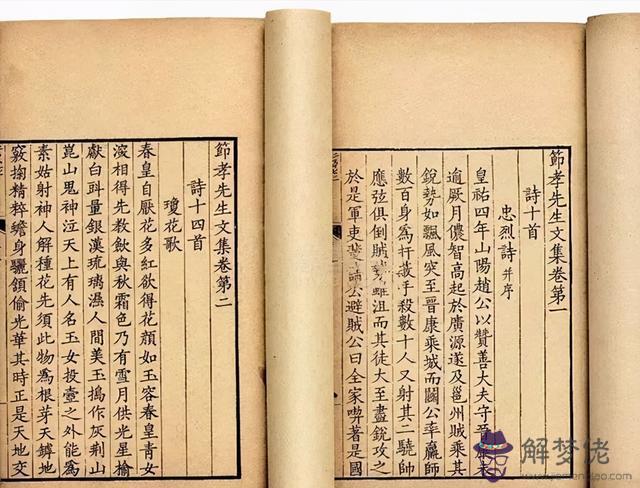 節孝先生文集卷第一
詩十首
忠烈詩并序
皇祐四年山陽趙公以贊善大夫守
逾厥月儂智高起於廣源遂及邕州賊乘其
銳勢如飄風突至晉康乘城而鬭公率羸師
數百身為杆蔽手殺數十人又射其二驍帥
應弦俱倒賊雖沮而其徒大至盡銳攻之
於是軍吏公避賊公曰全家啗著是國
節孝先生文集卷第二
詩十四首
瓊花歌
春皇自厭花多紅欲得花顔如玉容春皇青女
深相得先教飲與秋霜色乃有雪月供光星榆
獻白㪷量銀漢琉璃濕人間美玉搗作灰荆山
崑山鬼神泣天上有人名玉女投壺之外能為
素姑射神人解種花先須此物為根芽天鏄地
竅掬精粹蟾身驪領偷光華其時正是天地交
解梦佬
www.jiemenglao.com